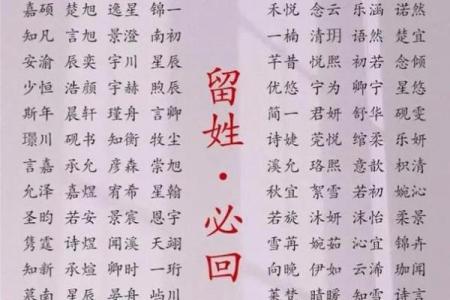 嘉硕 楚旭 逸星 锦一
知凡 言旭 景澄 南初
安渝 辰奕 宇川 星辰
少恒 浩颜 宇赫 煦辰
斯年 晨轩 瑾舟 言卿
璟川 砚书 知衡 牧尘
言嘉 承允 彦森 崇旭
允泽 嘉煜 宥希 星翰
圣昀 若安 景宸 恩宇
隽霆 诗煜 闻溪 天翊
知新 承煊 卿时 一珩
慕南 星辰 晏舟 屿川
留姓·必回
禾悦 念云 乐涵 诺然
一楠 清玥 语然 楚宜
芊昔 悦熙 初若 念倾
优悠 宁为 卿宁 星悠
简一 君妍 舒华 砚雯
诗婕 莞悦 绾柔 乐妍
溪允 珞熙 意歆 枳清
秋宜 絮雪 若初 婉沁
若旋 沐妍 沫怡 柔景
雪苒 婉茹 沁宜 锦卉
向晚 伊如 云浠 知闻
莱梦 晴暖 知雪 诗言